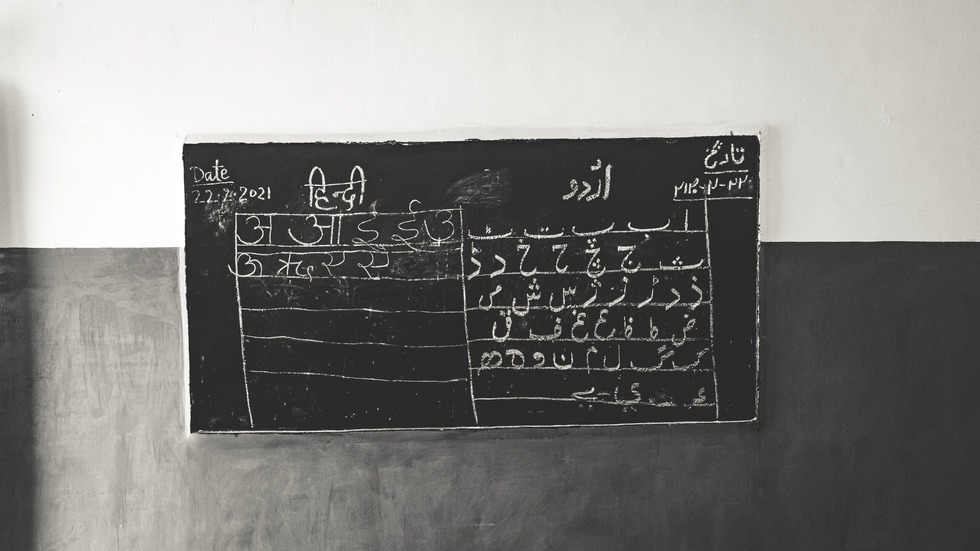 Date
22.2.2021
हिन्दी
अ आ इ ई उ
ऊ ऋ ए ऐ
اُردو
تاریخ
ا ب پ ت ٹ
ث ج چ ح خ د ڈ
ذ ر ڑ ز ژ س ش ص
ض ط ظ ع غ ف ق
ک گ ل م ن و ہ ھ
ء ی ے